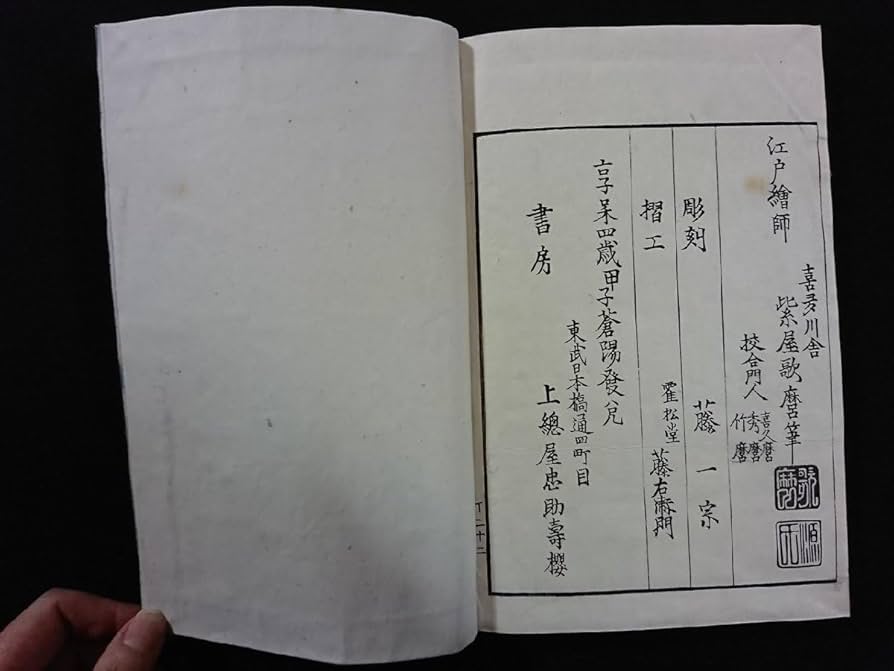 江戸繪師
喜多川舎
紫屋歌麿筆
歌麿
源氏
校合門人
喜久麿
秀麿
竹麿
彫刻
藤一宗
摺工
霍松堂
藤右衛門
享和四歳甲子蒼陽發兌
東武日本橋通四町目
書房
上總屋忠助壽櫻
下二十二